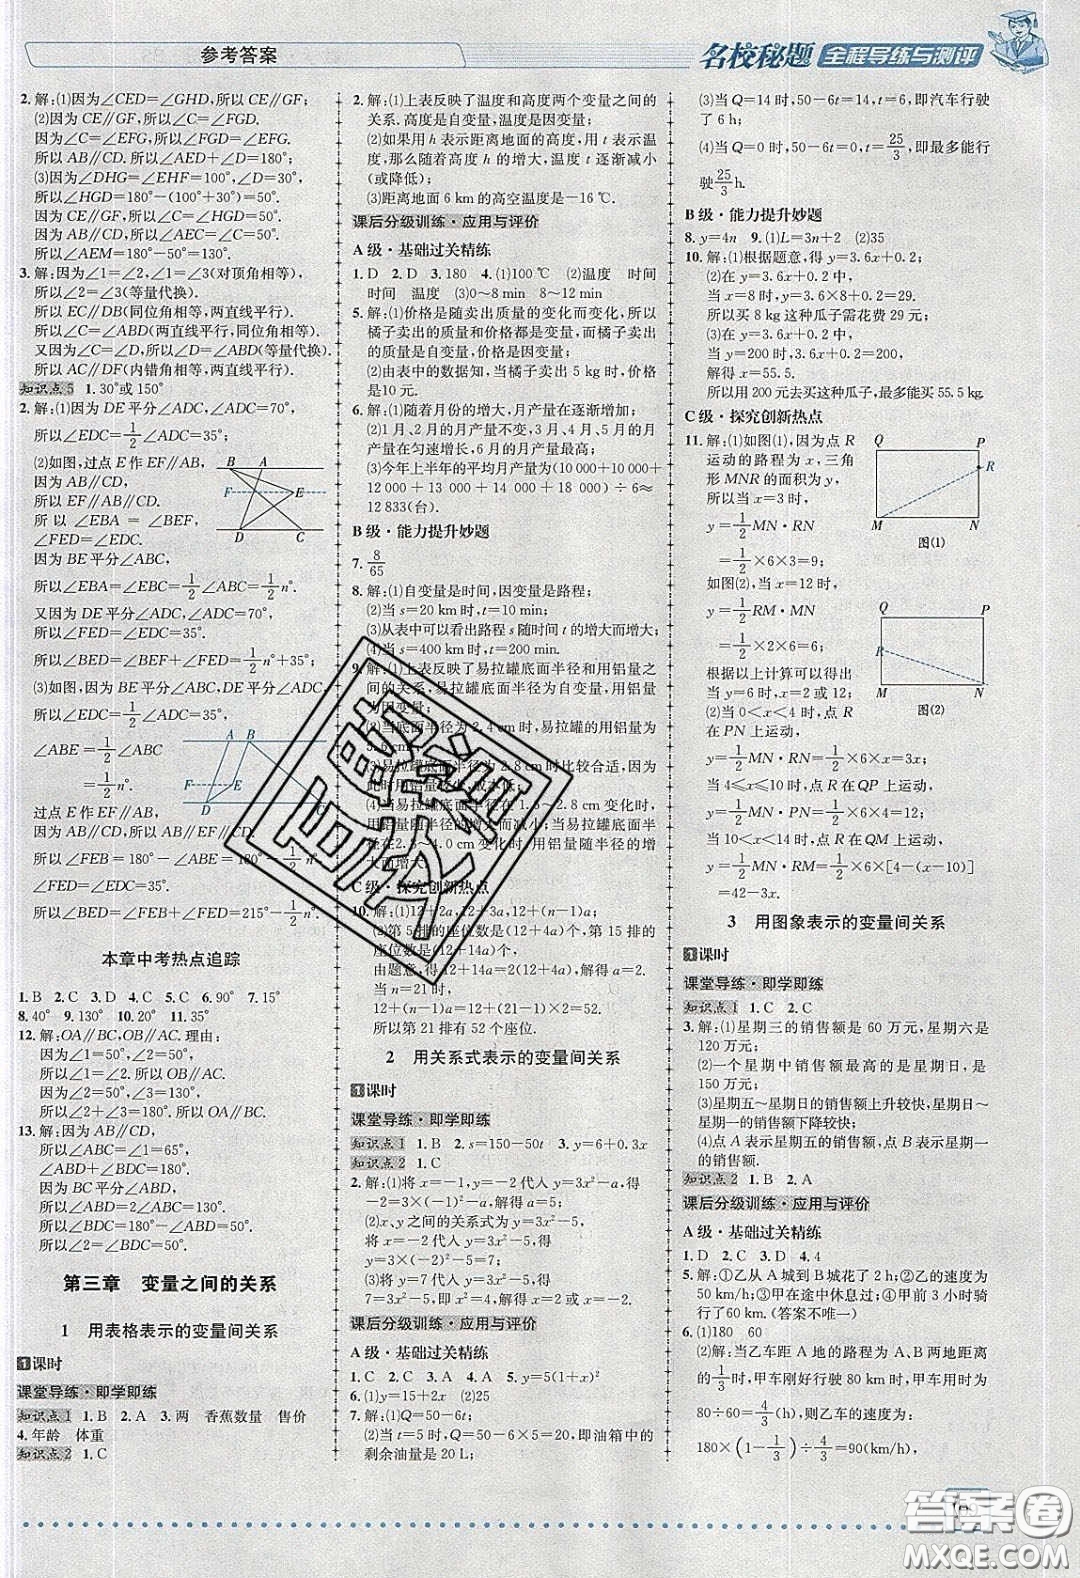 参考答案
名校秘题 全程导练与测评
2.解:(1)因为∠CED=∠GHD,所以CE∥GF;
(2)因为CE∥GF,所以∠C=∠FGD.
因为∠C=∠EFG,所以∠FGD=∠EFG.
所以AB∥CD.所以∠AED+∠D=180°;
(3)因为∠DHG=∠EHF=100°,∠D=30°,
所以∠HGD=180°-(100°+30°)=50°.
因为CE∥GF,所以∠C=∠HGD=50°.
因为AB∥CD,所以∠AEC=∠C=50°.
所以∠AEM=180°-50°=130°.
3.解:因为∠1=∠2,∠1=∠3(对顶角相等),
所以∠2=∠3(等量代换).
所以EC∥DB(同位角相等,两直线平行).
所以∠C=∠ABD(两直线平行,同位角相等).
又因为∠C=∠D,所以∠D=∠ABD(等量代换).
所以AC∥DF(内错角相等,两直线平行).
知识点5 1.30°或150°
2.解:(1)因为DE平分∠ADC,∠ADC=70°,
所以∠EDC=1/2∠ADC=35°;
(2)如图,过点E作EF∥AB,
因为AB∥CD,
所以EF∥AB∥CD.
所以∠EBA=∠BEF,
∠FED=∠EDC.
因为BE平分∠ABC,
所以∠EBA=∠EBC=1/2∠ABC=1/2n°.
又因为DE平分∠ADC,∠ADC=70°,
所以∠FED=∠EDC=35°.
所以∠BED=∠BEF+∠FED=1/2n°+35°;
(3)如图,因为BE平分∠ABC,DE平分∠ADC,
所以∠EDC=1/2∠ADC=35°,
∠ABE=1/2∠ABC
=1/2n°.
过点E作EF∥AB,
因为AB∥CD,所以AB∥EF∥CD.
所以∠FEB=180°-∠ABE=180°-1/2n°,
∠FED=∠EDC=35°.
所以∠BED=∠FEB+∠FED=215°-1/2n°.
本章中考热点追踪
1.B 2.C 3.A 4.C 5.C 6.90° 7.15°
8.40° 9.130° 10.20° 11.35°
12.解:OA∥BC,OB∥AC.理由:
因为∠1=50°,∠2=50°,
所以∠1=∠2.所以OB∥AC.
因为∠2=50°,∠3=130°,
所以∠2+∠3=180°.所以OA∥BC.
13.解:因为AB∥CD,
所以∠ABC=∠1=65°,
∠ABD+∠BDC=180°.
因为BC平分∠ABD,
所以∠ABD=2∠ABC=130°.
所以∠BDC=180°-∠ABD=50°.
所以∠2=∠BDC=50°.
第三章 变量之间的关系
1 用表格表示的变量间关系
1课时
课堂导练·即学即练
知识点1 1.B 2.A 3.两 香蕉数量 售价
4.年龄 体重
知识点2 1.C
2.解:(1)上表反映了温度和高度两个变量之间的
关系.高度是自变量,温度是因变量;
(2)如果用h表示距离地面的高度,用t表示温
度,那么随着高度h的增大,温度t逐渐减小
(或降低);
(3)距离地面6 km的高空温度是-16 ℃.
课后分级训练·应用与评价
A级·基础过关精练
1.D 2.D 3.180 4.(1)100 ℃ (2)温度 时间
时间 温度 (3)0~8 min 8~12 min
5.解:(1)价格是随卖出质量的变化而变化,所以
橘子卖出的质量和价格都是变量,而橘子卖出
的质量是自变量,价格是因变量;
(2)由表中的数据知,当橘子卖出5 kg时,价格
是10元.
6.解:(1)随着月份的增大,月产量在逐渐增加;
(2)1月、2月的月产量不变,3月、4月、5月的月
产量在匀速增长,6月的月产量最高;
(3)今年上半年的平均月产量为(10 000+10 000+
12 000+13 000+14 000+18 000)÷6≈
12 833(台).
B级·能力提升妙题
7.8/65
8.解:(1)自变量是时间,因变量是路程;
(2)当s=20 km时,t=10 min;
(3)从表中可以看出路程s随时间t的增大而增大;
(4)当s=400 km时,t=200 min.
9.解:(1)上表反映了易拉罐底面半径和用铝量之
间的关系,易拉罐底面半径为自变量,用铝量为
因变量;
(2)当底面半径为2.4 cm时,易拉罐的用铝量为
5.6 cm³;
(3)易拉罐底面半径为2.8 cm时比较合适,因为
此时用铝量较少,成本低;
(4)当易拉罐底面半径在1.6~2.8 cm变化时,
用铝量随半径的增大而减小;当易拉罐底面半
径在2.8~4.0 cm变化时,用铝量随半径的增大
而增大.
C级·探究创新热点
10.解:(1)12+2a,12+3a,12+(n-1)a;
(2)第5排的座位数是(12+4a)个,第15排的
座位数是(12+14a)个.
由题意,得12+14a=2(12+4a).解得a=2.
当n=21时,
12+(n-1)a=12+(21-1)×2=52.
所以第21排有52个座位.
2 用关系式表示的变量间关系
1课时
课堂导练·即学即练
知识点1 1.B 2.s=150-50t 3.y=6+0.3x
知识点2 1.C
2.解:(1)将x=-1,y=-2代入y=3x²-a,得
-2=3×(-1)²-a,解得a=5;
(2)x,y之间的关系式为y=3x²-5,
将x=-2代入y=3x²-5,得
y=3×(-2)²-5=7;
(3)将y=7代入y=3x²-5,得
7=3x²-5,即x²=4,解得x=2或x=-2.
课后分级训练·应用与评价
A级·基础过关精练
1.C 2.C 3.C 4.A 5.y=5(1+x)²
6.(1)y=15+2x (2)25
7.解:(1)Q=50-6t;
(2)当t=5时,Q=50-6×5=20,即油箱中的
剩余油量是20 L;
(3)当Q=14时,50-6t=14,t=6,即汽车行驶
了6 h;
(4)当Q=0时,50-6t=0,t=25/3,即最多能行
驶25/3 h.
B级·能力提升妙题
8.y=4n 9.(1)L=3n+2 (2)35
10.解:(1)根据题意,得y=3.6x+0.2;
(2)在y=3.6x+0.2中,
当x=8时,y=3.6×8+0.2=29.
所以买8 kg这种瓜子需花费29元;
(3)在y=3.6x+0.2中,
当y=200时,3.6x+0.2=200,
解得x=55.5.
所以用200元去买这种瓜子,最多能买55.5 kg.
C级·探究创新热点
11.解:(1)如图(1),因为点R
运动的路程为x,三角
形MNR的面积为y,
所以当x=3时,
y=1/2MN·RN
=1/2×6×3=9;
如图(2),当x=12时,
y=1/2RM·MN
=1/2×2×6=6;
根据以上计算可以得出
当y=6时,x=2或12;
(2)当0<x<4时,点R
在PN上运动,
y=1/2MN·RN=1/2×6×x=3x;
当4≤x≤10时,点R在QP上运动,
y=1/2MN·PN=1/2×6×4=12;
当10<x<14时,点R在QM上运动,
y=1/2MN·RM=1/2×6×[4-(x-10)]
=42-3x.
图(1)
图(2)
3 用图象表示的变量间关系
1课时
课堂导练·即学即练
知识点1 1.C 2.C
3.解:(1)星期三的销售额是60万元,星期六是
120万元;
(2)一个星期中销售额最高的是星期日,是
150万元;
(3)星期五~星期日的销售额上升较快,星期日~
星期一的销售额下降较快;
(4)点A表示星期五的销售额,点B表示星期
一的销售额.
知识点2 1.B 2.A
课后分级训练·应用与评价
A级·基础过关精练
1.D 2.C 3.D 4.4
5.解:①乙从A城到B城花了2 h;②乙的速度为
50 km/h;③甲在途中休息过;④甲前3小时共
行了60 km.(答案不唯一)
6.(1)180 60
(2)解:当乙车距A地的路程与A、B两地距离
的1/3时,甲车刚好行驶80 km,甲车行驶的时间为
80÷60=4/3(h),则乙车的速度为
180×(1-1/3)÷4/3=90(km/h),
答案圈
MXQE.COM